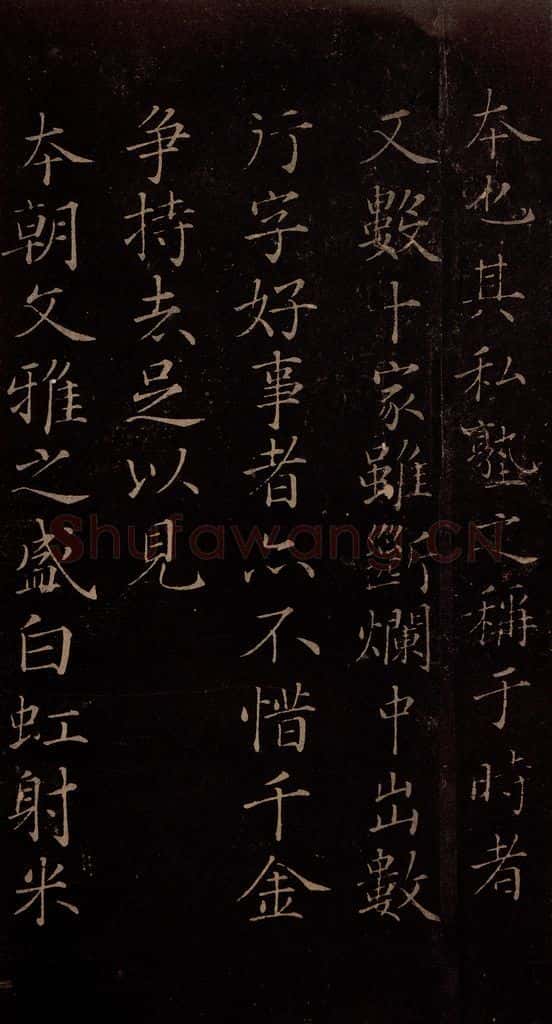 本也其私塾之稱于時者
又數十家雖斷爛中出數
行字好事者亦不惜千金
爭持去足以見
本朝文雅之盛白虹射米
Shufawang.CN